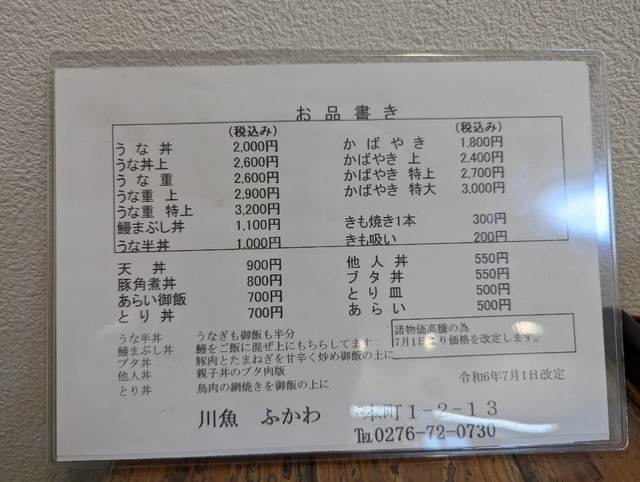 お品書き
(税込み) (税込み)
うな丼 2,000円 かばやき 1,800円
うな丼上 2,600円 かばやき 上 2,400円
うな重 2,600円 かばやき 特上 2,700円
うな重 上 2,900円 かばやき 特大 3,000円
うな重 特上 3,200円
鰻まぶし丼 1,100円 きも焼き1本 300円
うな半丼 1,000円 きも吸い 200円
天丼 900円 他人丼 550円
豚角煮丼 800円 ブタ丼 550円
あらい御飯 700円 とり皿 500円
とり丼 700円 あらい 500円
うな半丼 うなぎも御飯も半分
鰻まぶし丼 鰻をご飯に混ぜ上にもちらしてます
ブタ丼 豚肉とたまねぎを甘辛く炒め御飯の上に
他人丼 親子丼のブタ肉版
とり丼 鳥肉の網焼きを御飯の上に
諸物価高騰の為
7月1日より価格を改定します。
令和6年7月1日改定
川魚 ふかわ 本町1-2-13
℡0276-72-0730